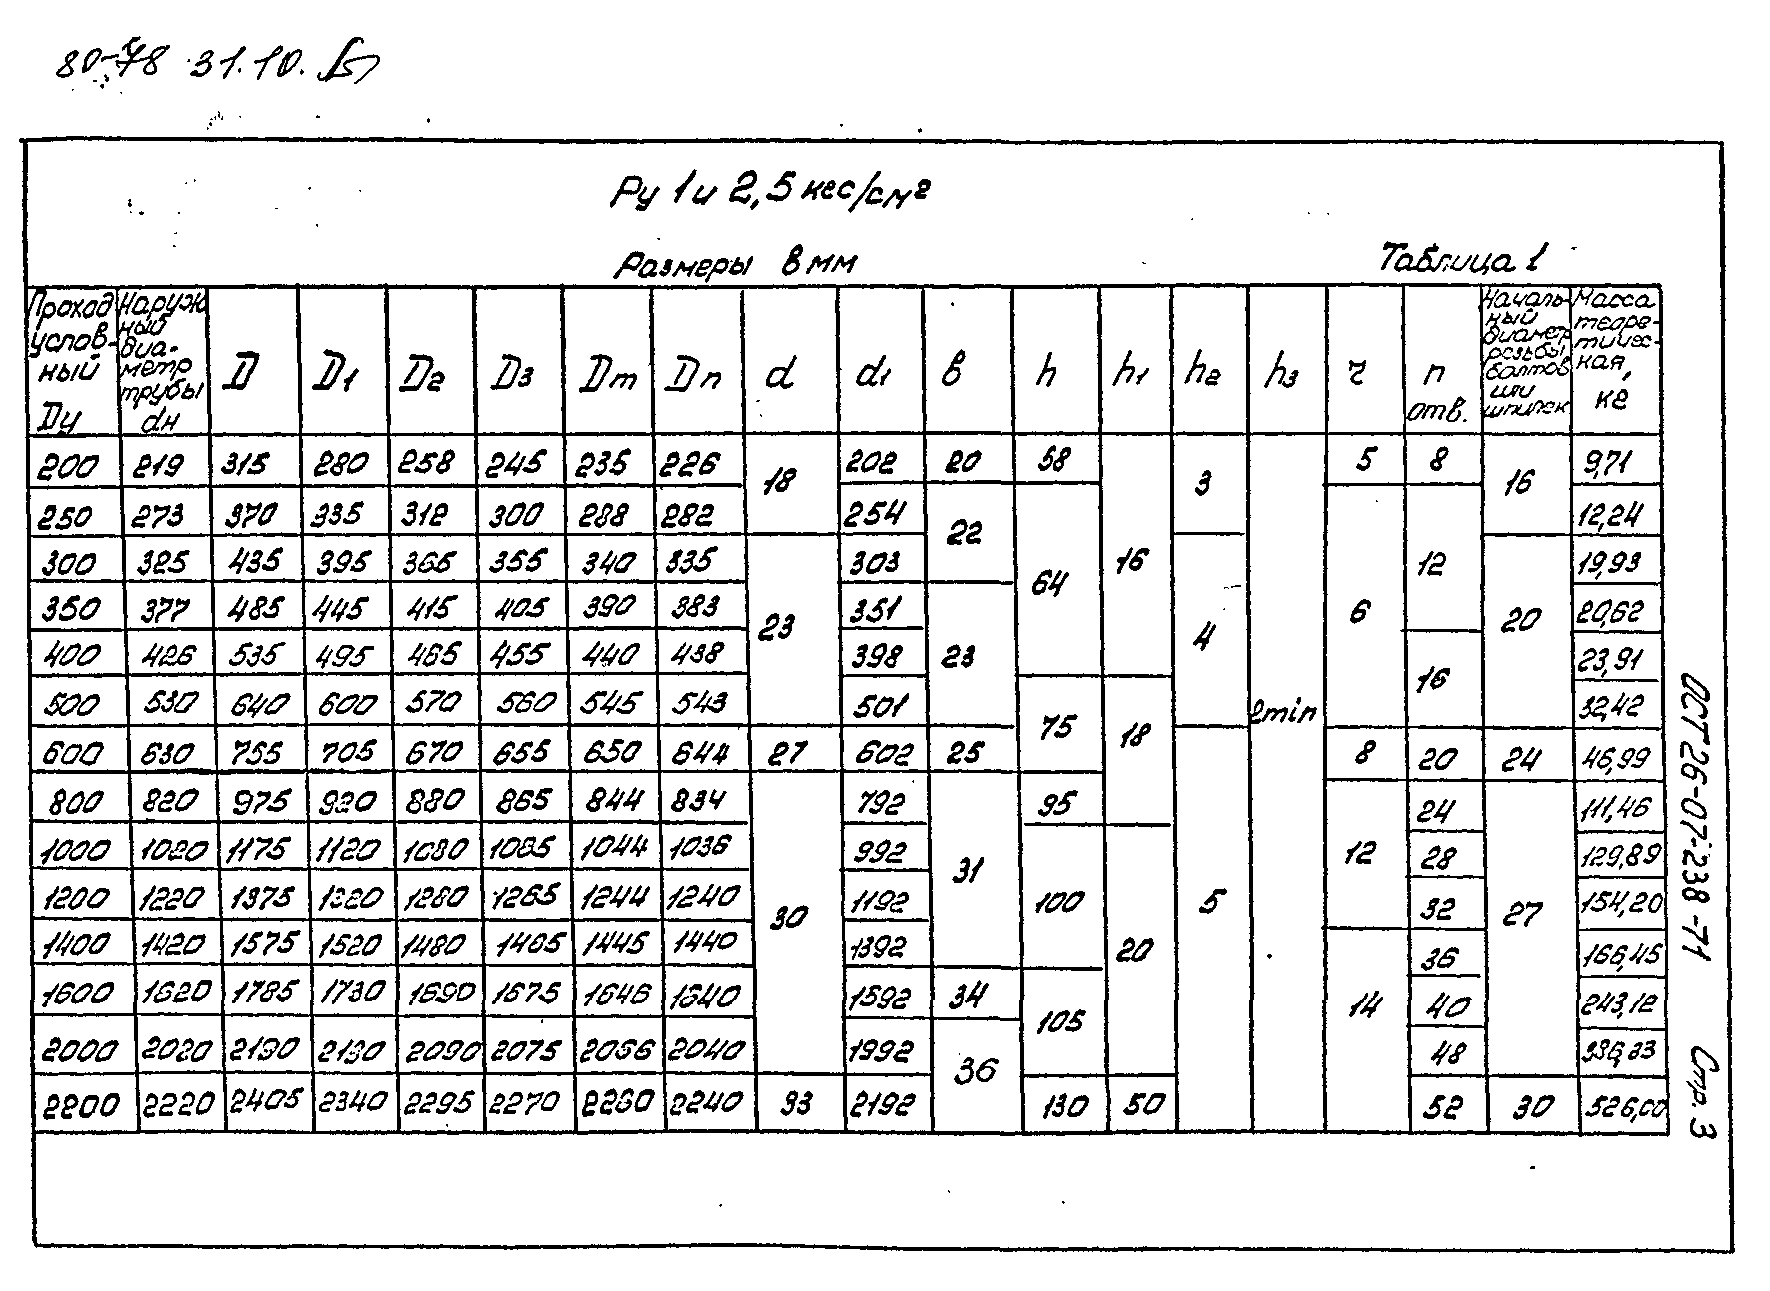 80-78 31.10.
Ру 1 и 2,5 кгс/см²
Размеры в мм Таблица 1
Проход условный Ду | Наружный диаметр трубы dн | D | D1 | D2 | D3 | Dm | Dп | d | d1 | в | h | h1 | h2 | h3 | r | n отв. | Начальный диаметр резьбы болтов или шпилек | Масса теоретическая, кг
200 219 315 280 258 245 235 226 18 202 20 58 16 3 2min 5 8 16 9,71
250 273 370 335 312 300 288 282 254 22 64 6 12 12,24
300 325 435 395 365 355 340 335 23 303 4 20 19,93
350 377 485 445 415 405 390 383 351 23 20,62
400 426 535 495 465 455 440 438 398 16 23,91
500 530 640 600 570 560 545 543 501 75 18 32,42
600 630 755 705 670 655 650 644 27 602 25 5 8 20 24 46,99
800 820 975 920 880 865 844 834 30 792 31 95 12 24 27 111,46
1000 1020 1175 1120 1080 1065 1044 1036 992 100 20 28 129,89
1200 1220 1375 1320 1280 1265 1244 1240 1192 32 154,20
1400 1420 1575 1520 1480 1465 1445 1440 1392 14 36 166,45
1600 1620 1785 1730 1690 1675 1646 1640 1592 34 105 40 243,12
2000 2020 2190 2130 2090 2075 2066 2040 1992 36 48 336,33
2200 2220 2405 2340 2295 2270 2260 2240 33 2192 130 50 52 30 526,00
ОСТ 26-07-238-71 Стр. 3